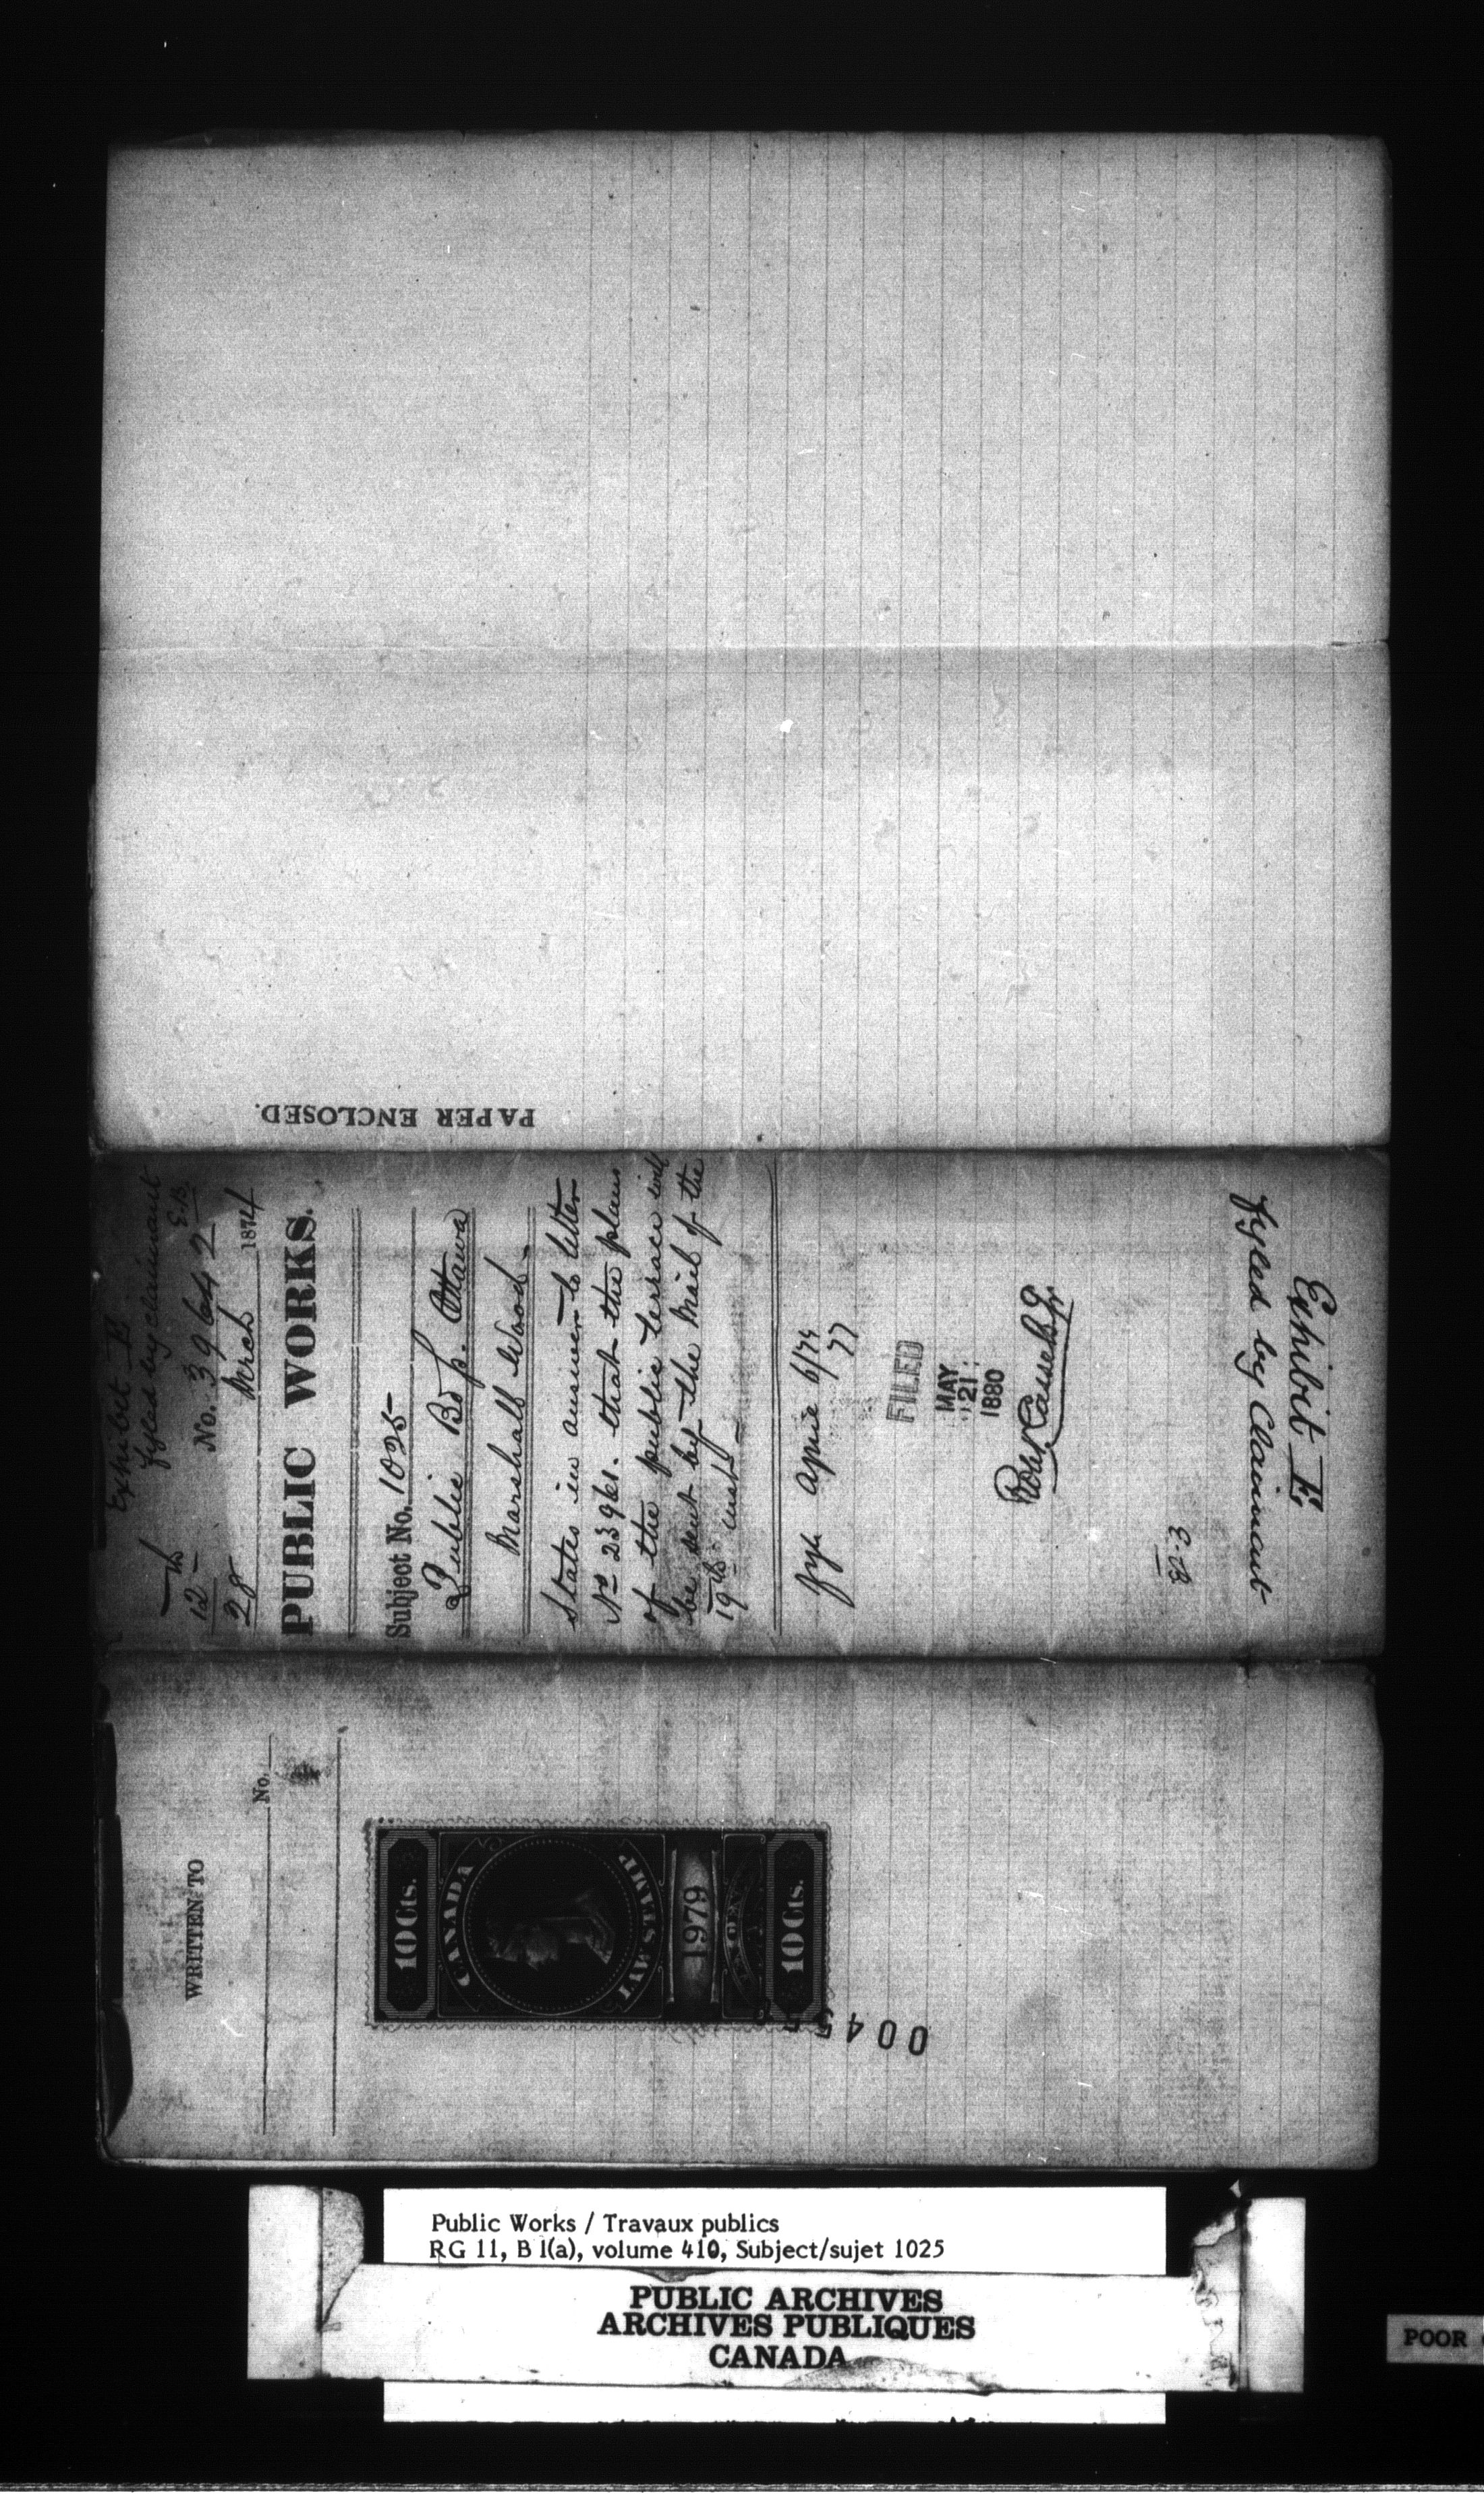 PAPER ENCLOSED.
Exhibit E
fyled by claimant
E.B.
12th
No. 39642
28 March 1874
PUBLIC WORKS.
Subject No. 1025
Public Bdgs. Ottawa
Marshall Wood
States in answer to letter
No 23961. that the plans
of the public terrace will
be sent by the Mail of the
19th inst
April 6/74
77
FILED
MAY
21
1880
E.B
fyled by Claimant
Exhibit E
WRITTEN TO
No.
10 Cts.
CANADA
LAW STAMP
1979
TEN CENTS
10 Cts.
0045
Public Works / Travaux publics
RG 11, B 1(a), volume 410, Subject/sujet 1025
PUBLIC ARCHIVES
ARCHIVES PUBLIQUES
CANADA
POOR